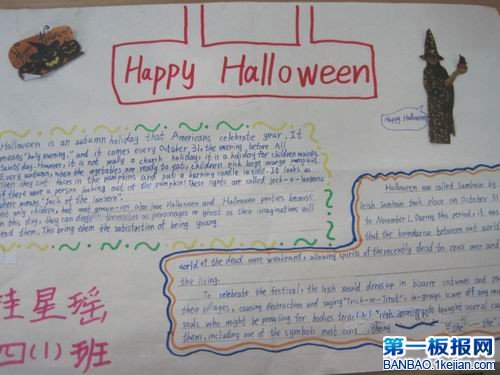 Happy Halloween
Happy Halloween
Happy Halloween
Halloween is an autumn holiday that Americans celebrate year. It
means "holy evening," and it comes every October 31, the evening before All
Saints' day. However, it is not really a church holiday, it is a holiday for children mainly.
Every autumn, when the vegetables are ready to eat, children pick large orange pumpkin.
Then they cut faces in the pumpkins and put a burning candle inside. It looks as
if there were a person looking out of the pumpkin! These lights are called jack-o-lanterns
where means "Jack of the lantern".
not only children, but most grown-ups also love Halloween and Halloween parties because
on this day, they can themselves as personages or ghost as their imaginations will
lead them. This bring them the satisfaction of being young
Halloween was called Samhain by
Irish Samhain took place on October 31
to November 1. During this period, it
that the boundarise between out world
world of the dead were weakened, allowing spirits of the recently dead to cross over and
the living.
To celebrate the festival, the Irish would dress up in bizarre costumes and
their villages, causing destruction and saying "Trick-or-Treat", in groups scare off any
souls who might be prowling for bodies to
them, including one of the symbols most
佳星瑶
四(1)班
第一板报网
BANBAO.1kejian.com